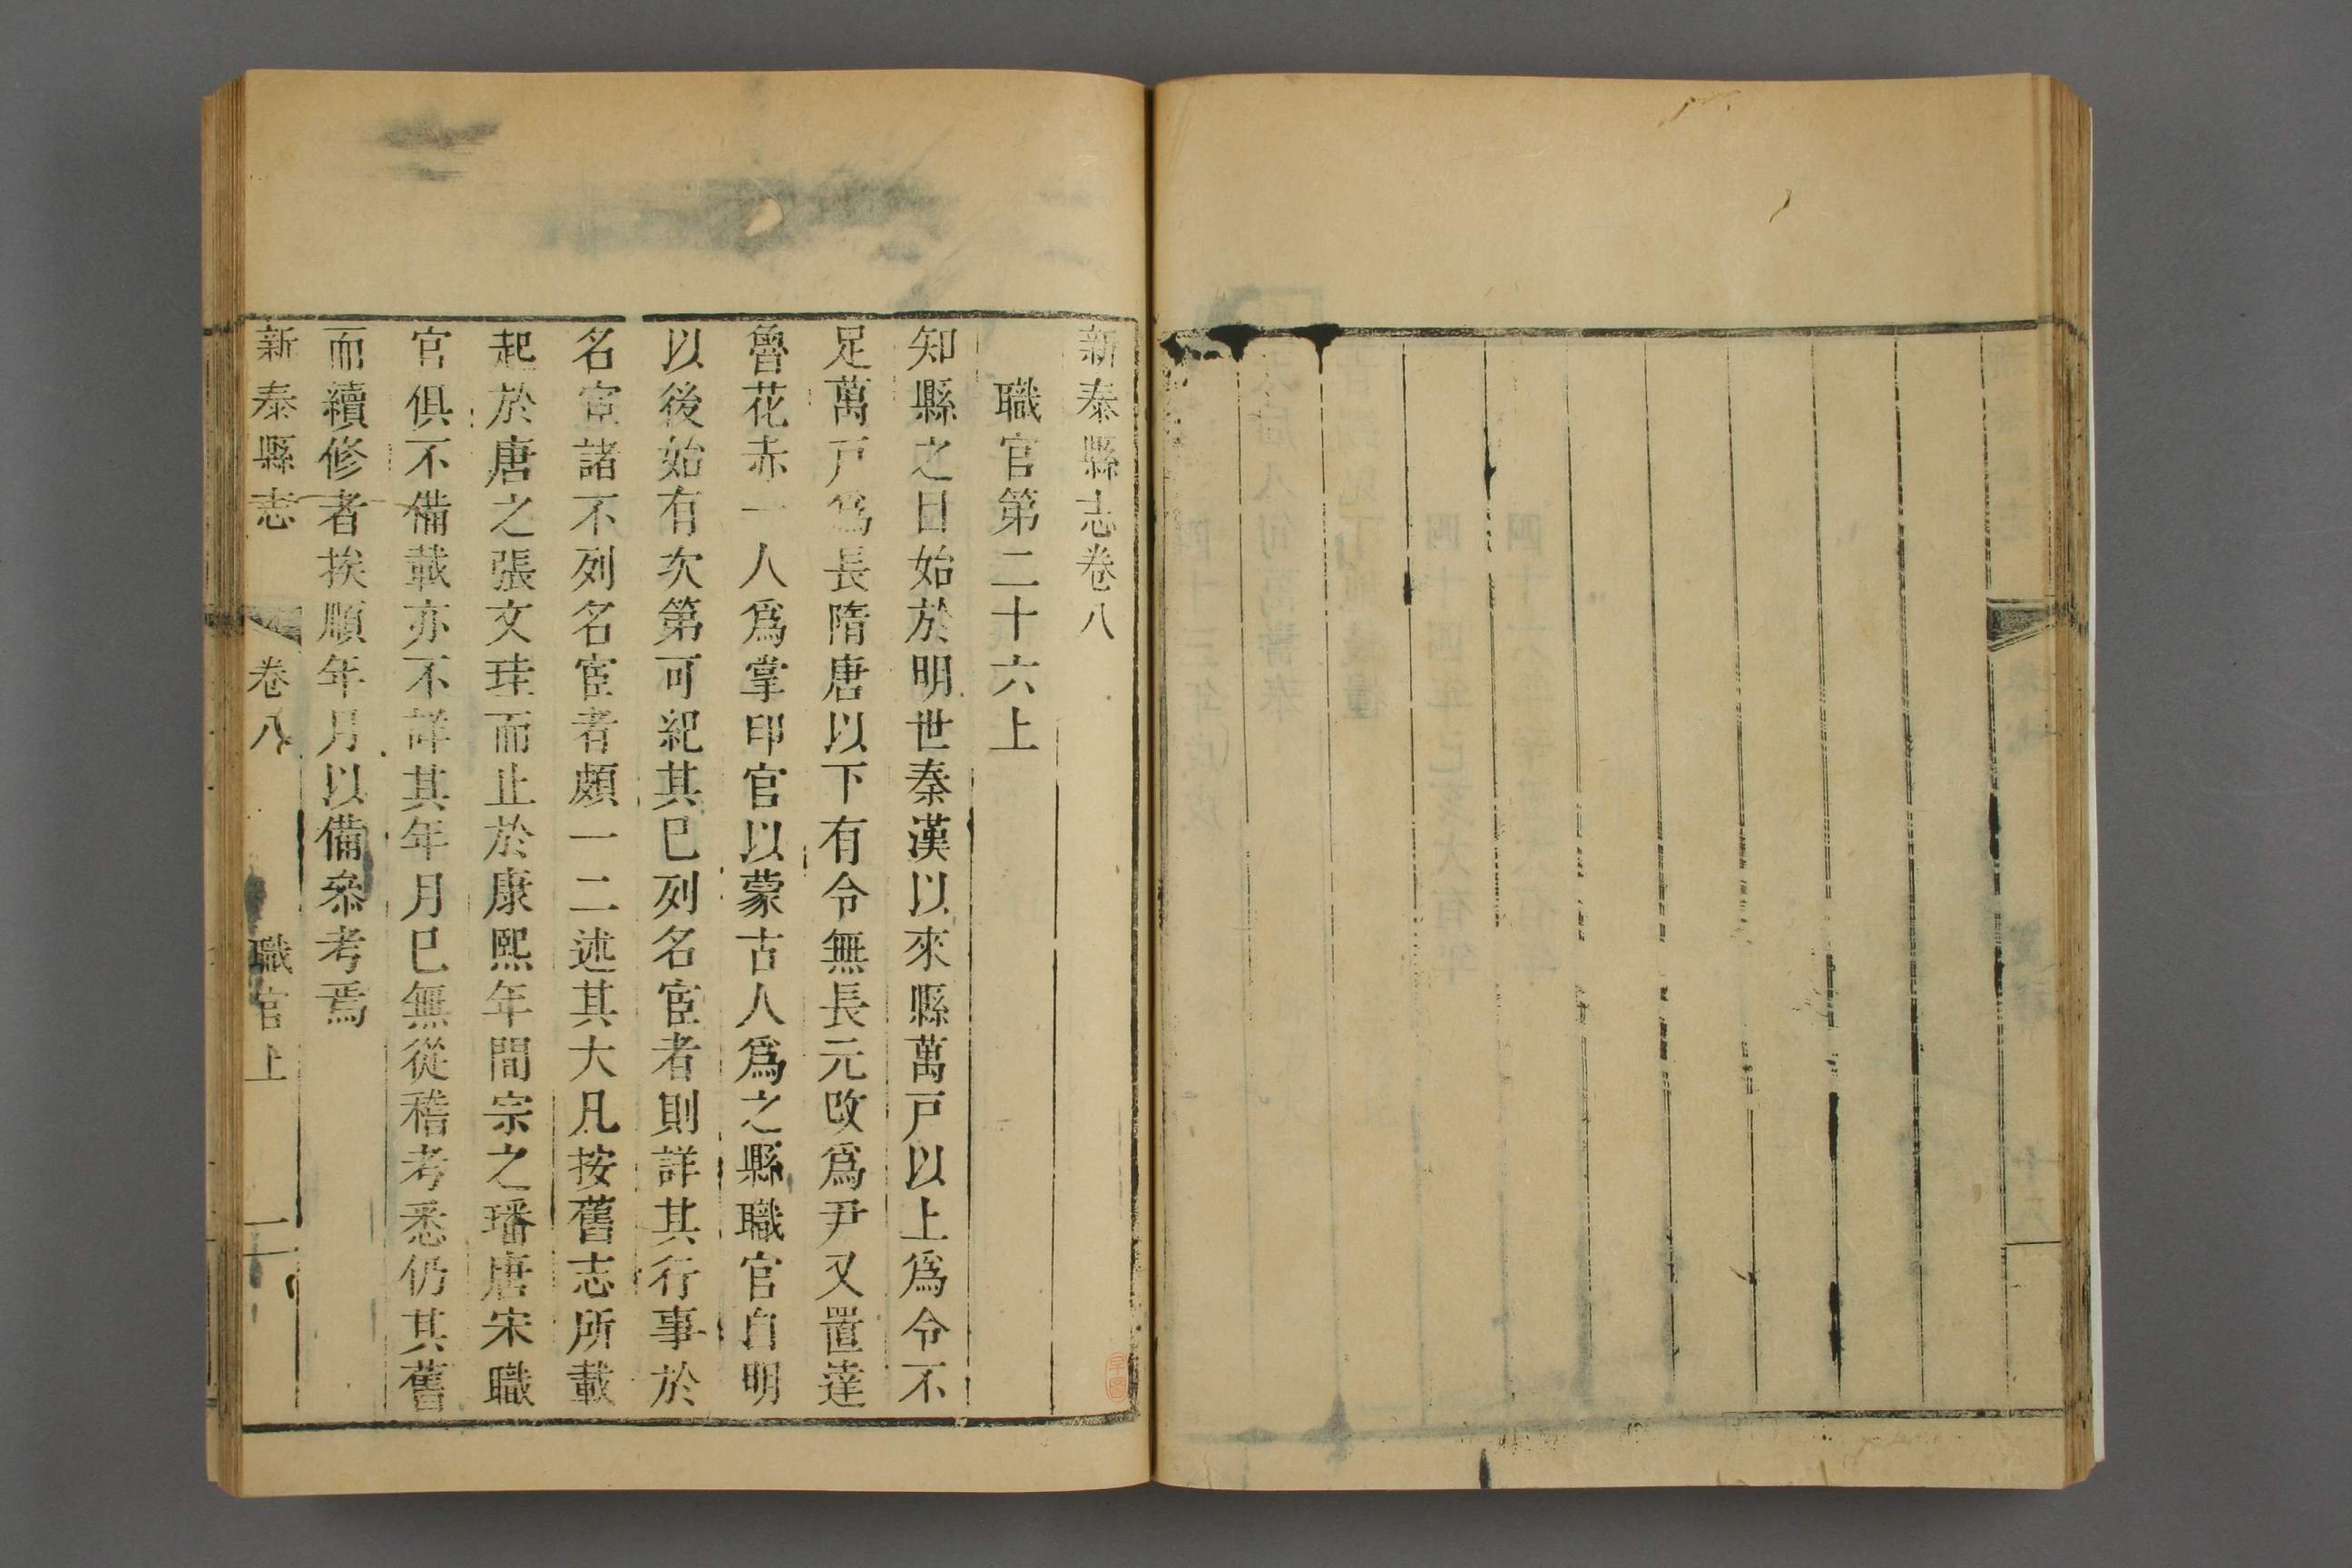 新泰縣志卷八
職官第二十六上
知縣之目始於明世秦漢以來縣萬戸以上爲令不
足萬戸爲長隋唐以下有令無長元改爲尹又置達
魯花赤一人爲掌印官以蒙古人爲之縣職官自明
以後始有次第可紀其巳列名宦者則詳其行事於
名宦諸不列名宦者頗一二述其大凡按舊志所載
起於唐之張文珪而止於康熙年間宗之璠唐宋職
官俱不備載亦不詳其年月巳無從稽考悉仍其舊
而續修者挨順年月以備叅考焉
新泰縣志
卷八
職官上
一